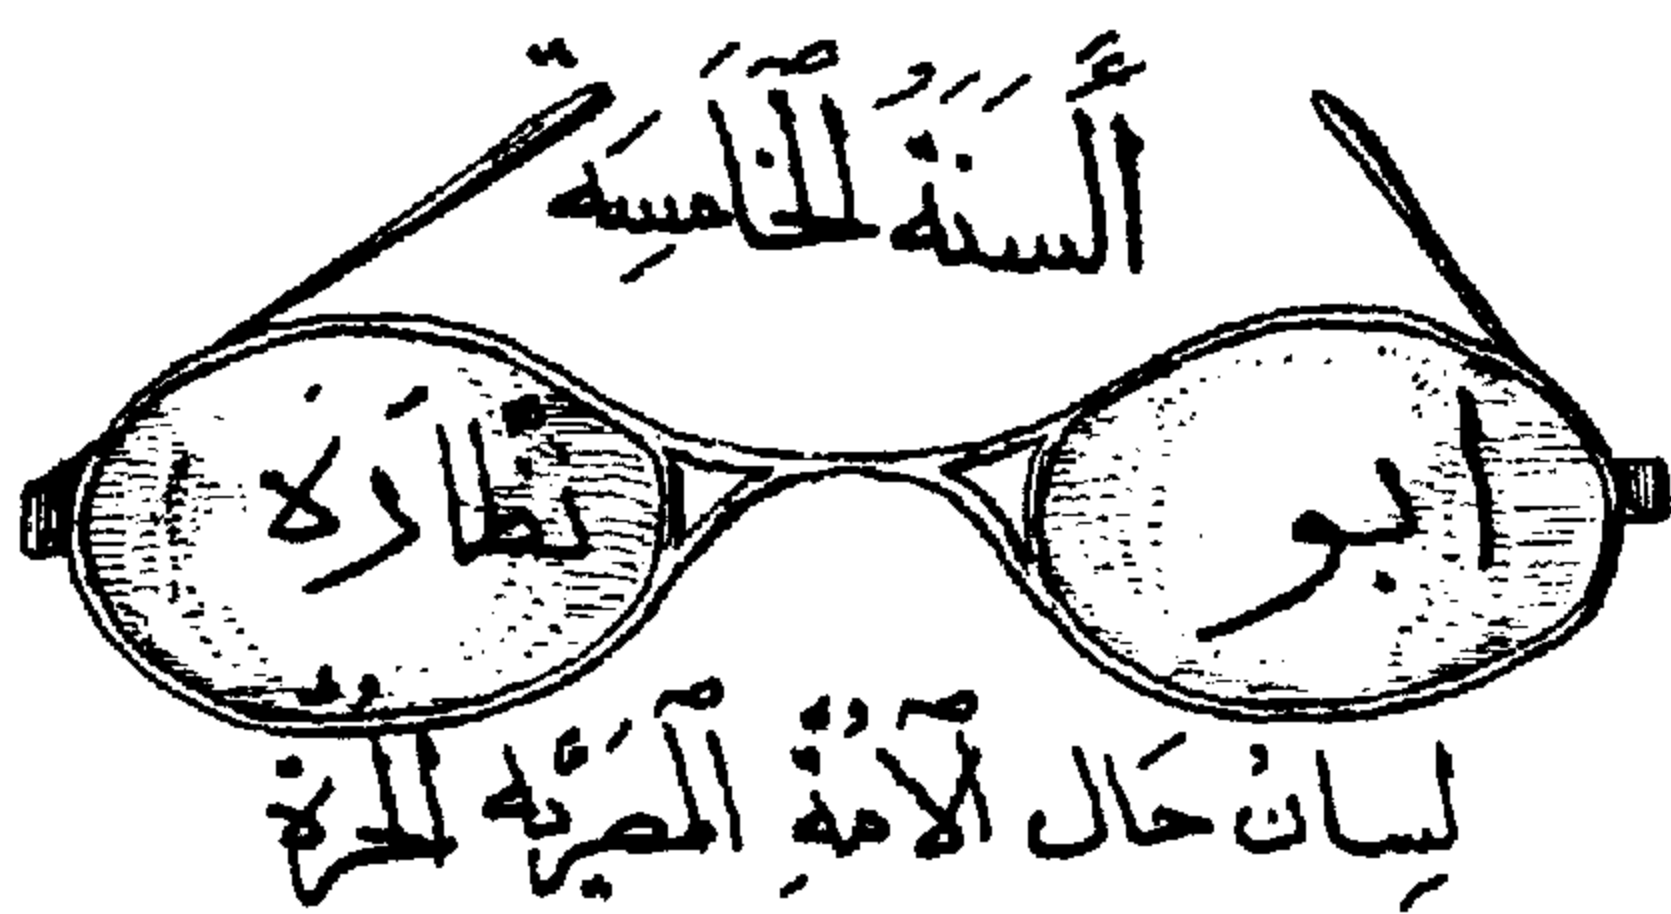 أَلسَنَةُ الخَامِسَه
ابو نظَارَة
لِسانُ حَال الاُمةِ المصِرَيّه الحُرة